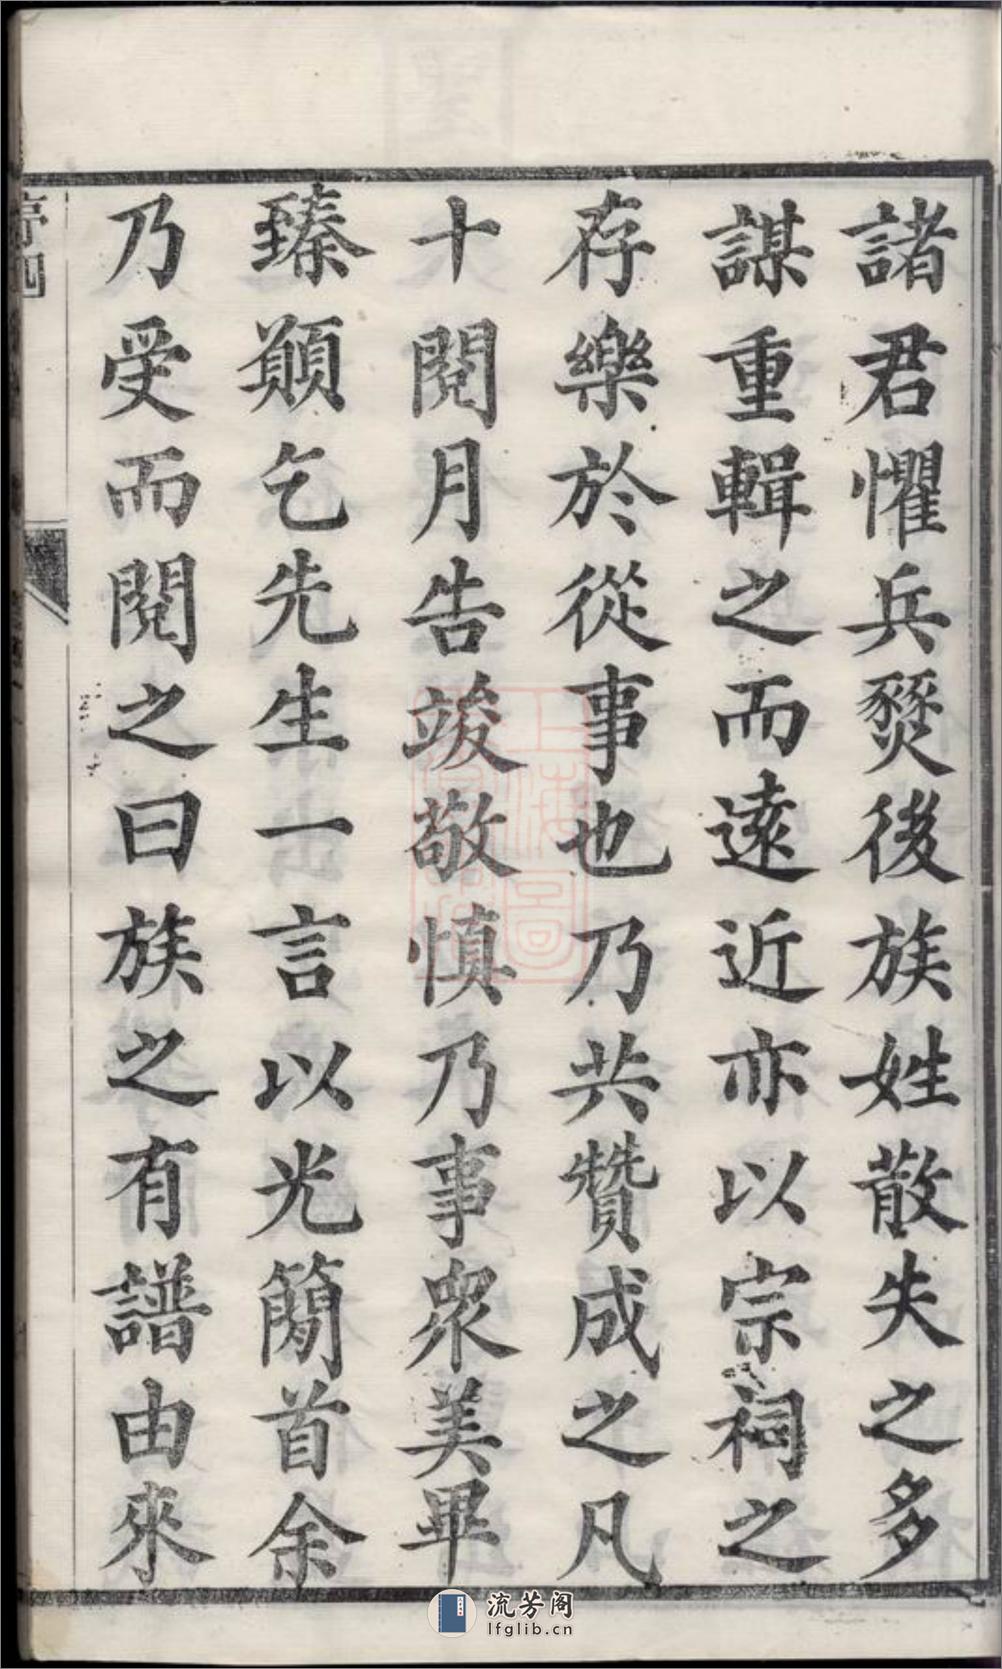 諸君懼兵燹後族姓散失之多
謀重輯之而遠近亦以宗祠之
存樂於從事也乃共贊成之凡
十閱月告竣敬慎乃事眾美畢
臻願乞先生一言以光簡首余
乃受而閱之曰族之有譜由來
序四
流芳阁
lfglib.cn